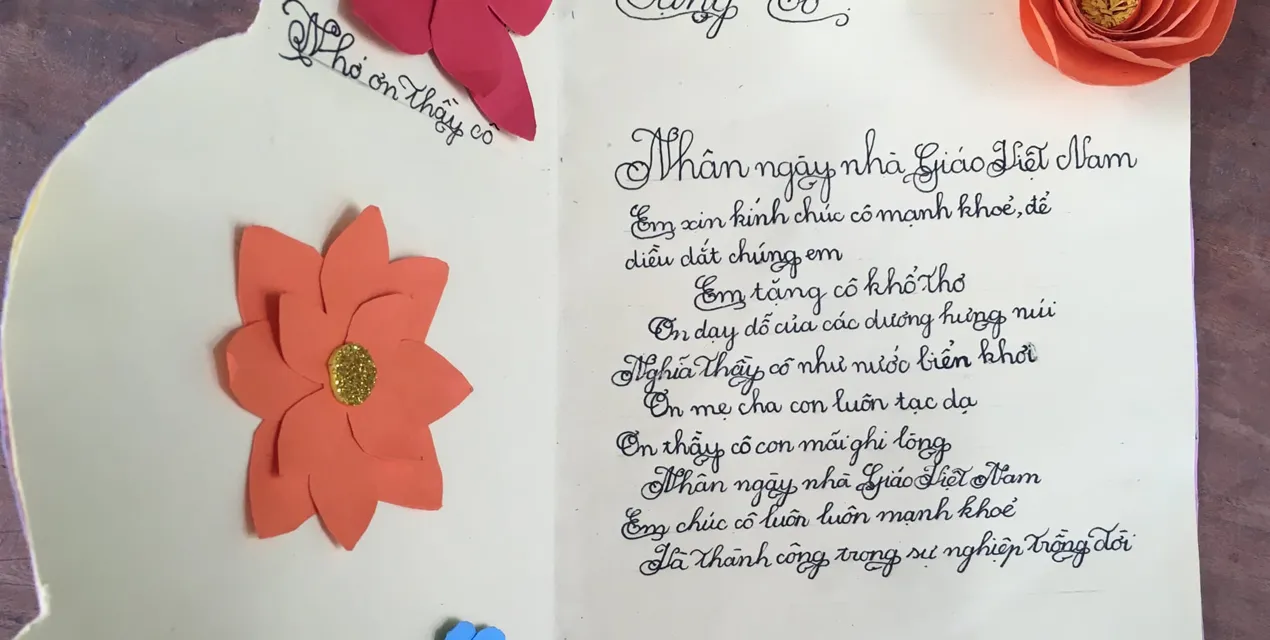 Nhớ ơn thầy cô
Tặng Cô
Nhân ngày nhà Giáo Việt Nam
Em xin kính chúc cô mạnh khoẻ, để
diều dắt chúng em
Em tặng cô khổ thơ
Ơn dạy dỗ của các dương hưng núi
Nghĩa thầy cô như nước biển khơi
Ơn mẹ cha con luôn tạc dạ
Ơn thầy cô con mãi ghi lòng
Nhân ngày nhà Giáo Việt Nam
Em chúc cô luôn luôn mạnh khoẻ
Và thành công trong sự nghiệp trồng đời